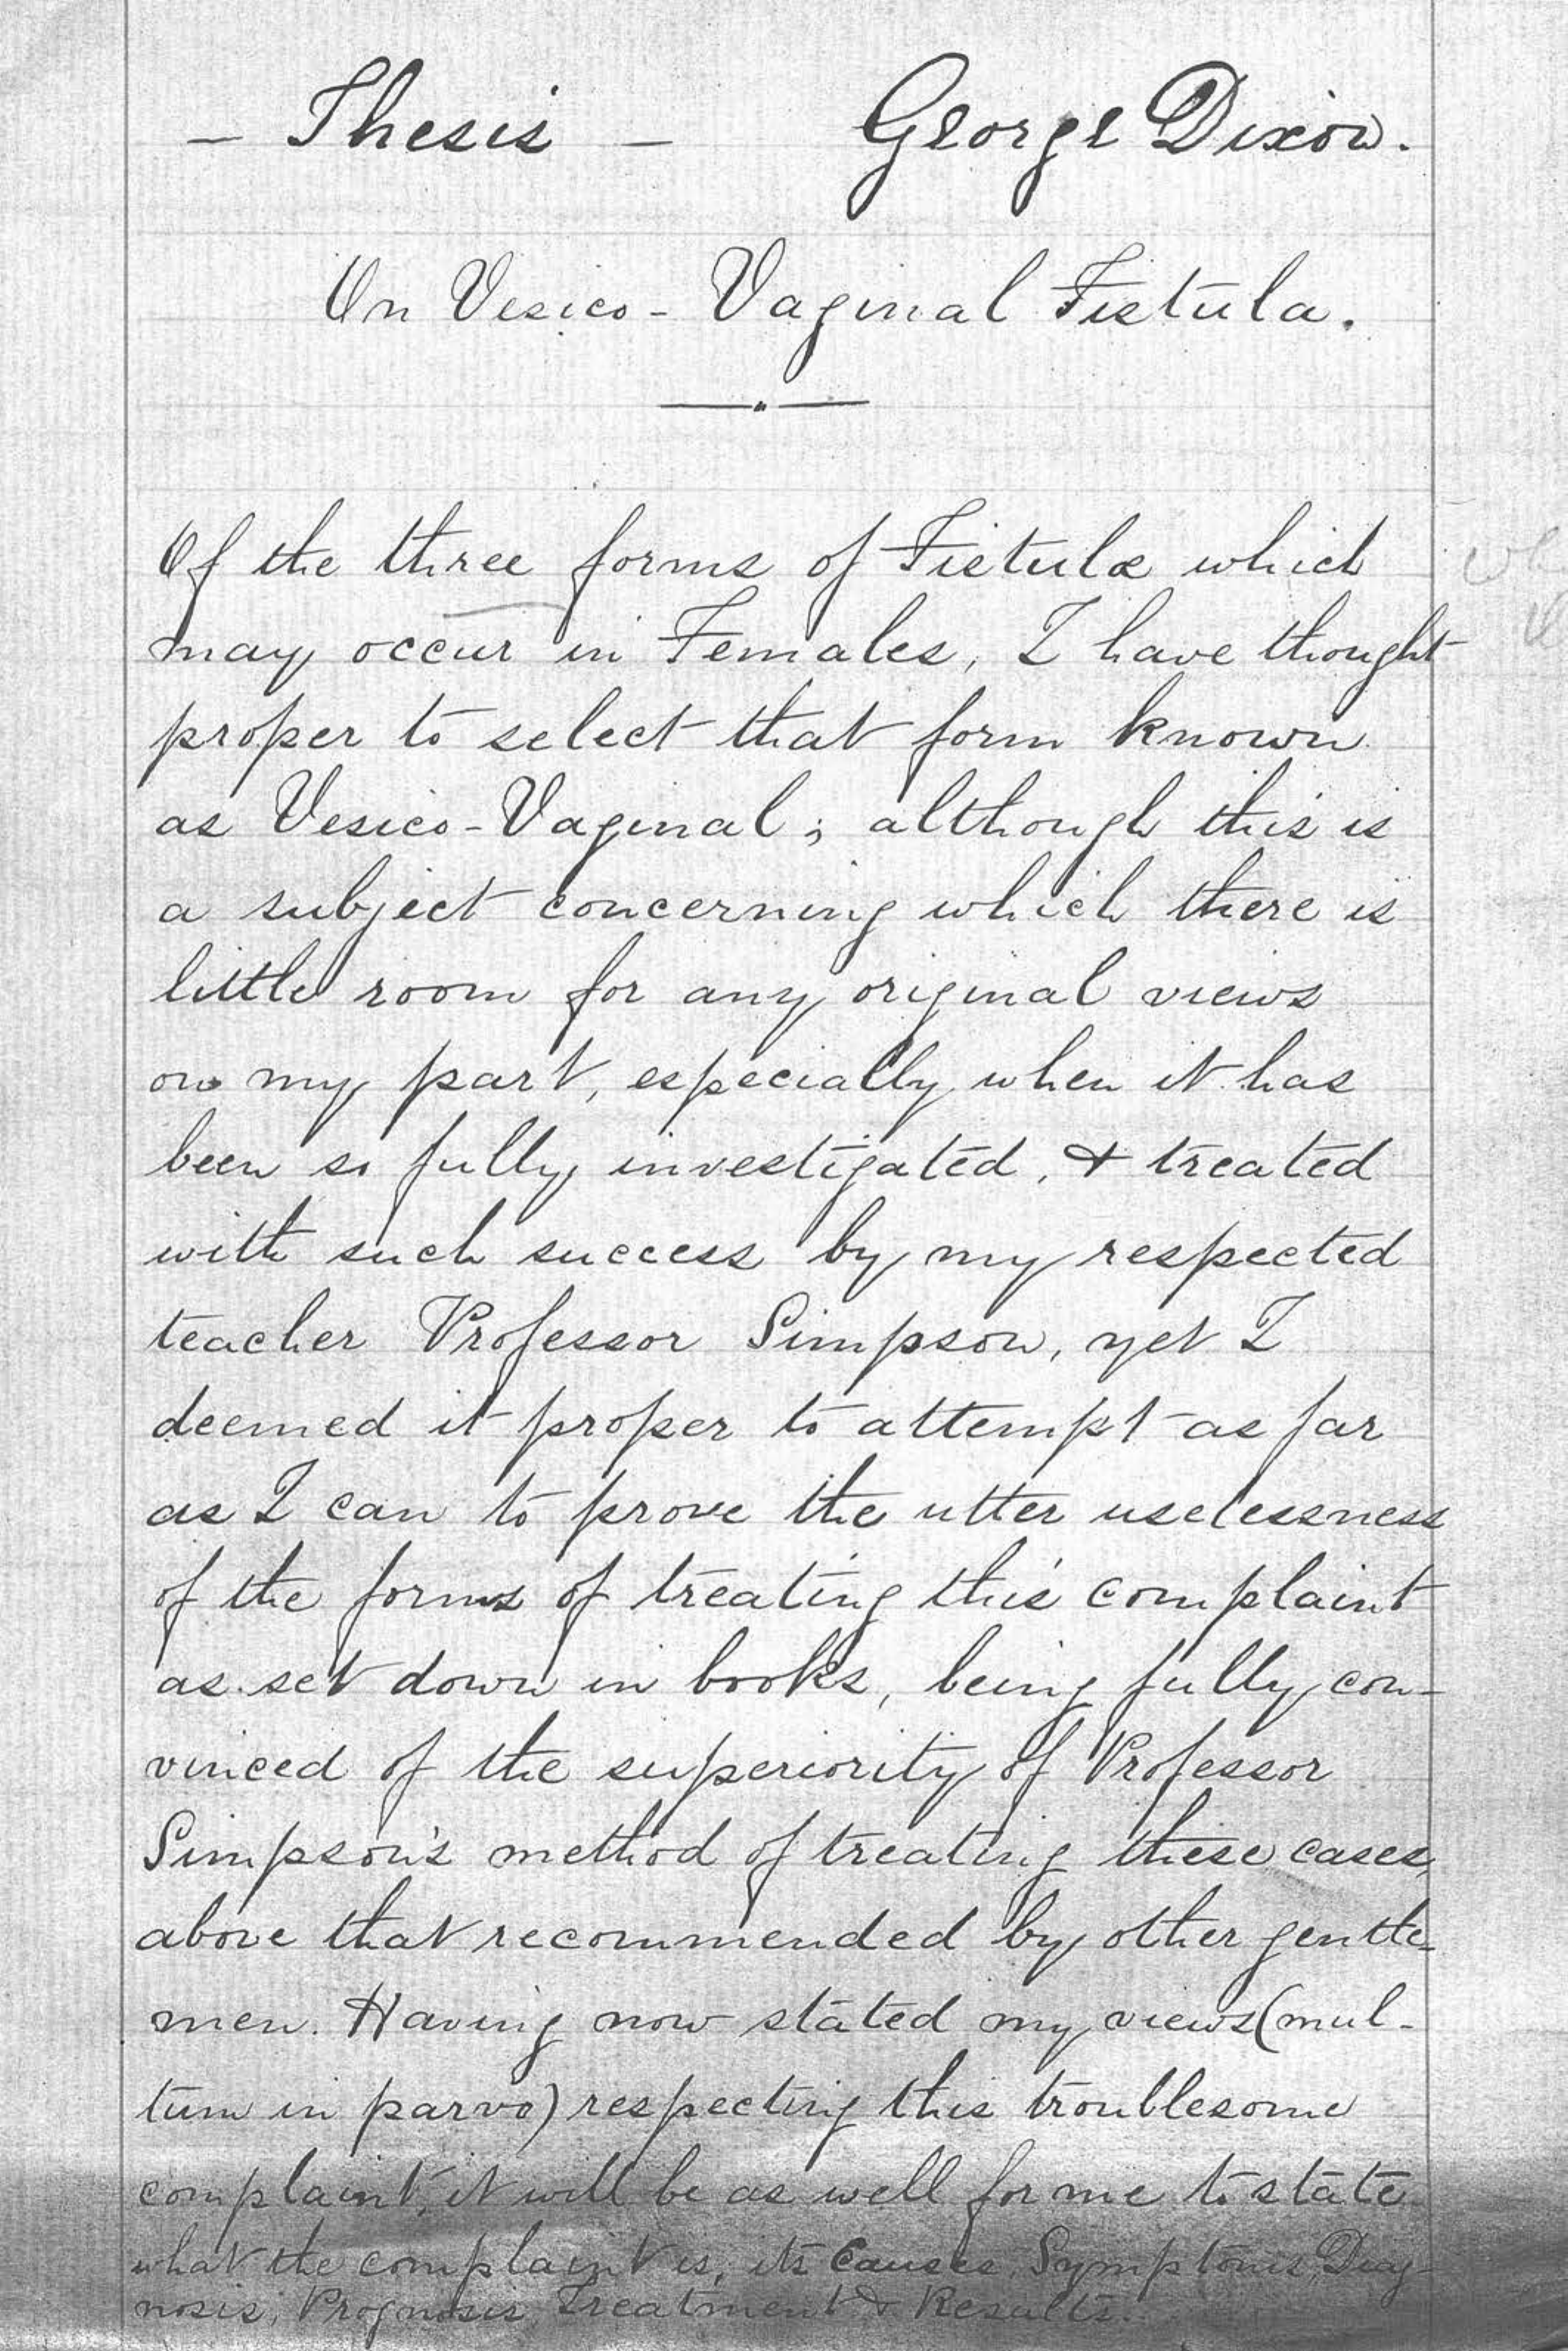 – Thesis – George Dixon.
On Vesico-Vaginal Fistula.
Of the three forms of Fistulæ which
may occur in Females, I have thought
proper to select that form known
as Vesico-Vaginal; although this is
a subject concerning which there is
little room for any original views
on my part, especially when it has
been so fully investigated, & treated
with such success by my respected
teacher Professor Simpson, yet I
deemed it proper to attempt as far
as I can to prove the utter uselessness
of the forms of treating this complaint
as set down in books, being fully con-
vinced of the superiority of Professor
Simpson's method of treating these cases,
above that recommended by other gentle-
men. Having now stated my views (mul-
tum in parvo) respecting this troublesome
complaint, it will be as well for me to state
what the complaint is, its Causes, Symptoms, Diag-
nosis, Prognosis, Treatment & Results.